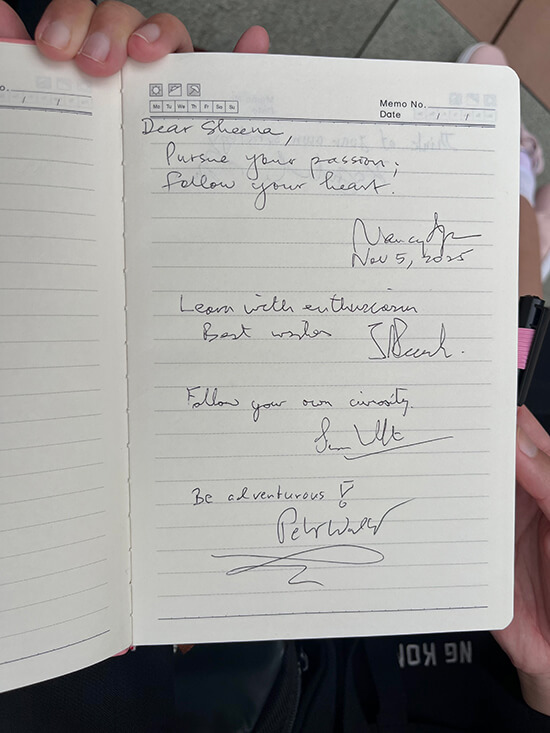 Mo Tu We Th Fr Sa Su
Memo No.
Date / /
Dear Sheena,
Pursue your passion;
follow your heart.
Nancy
Nov 5, 2025
Learn with enthusiasm
Best wishes
Follow your own curiosity.
Be adventurous!
Peter
NG KON